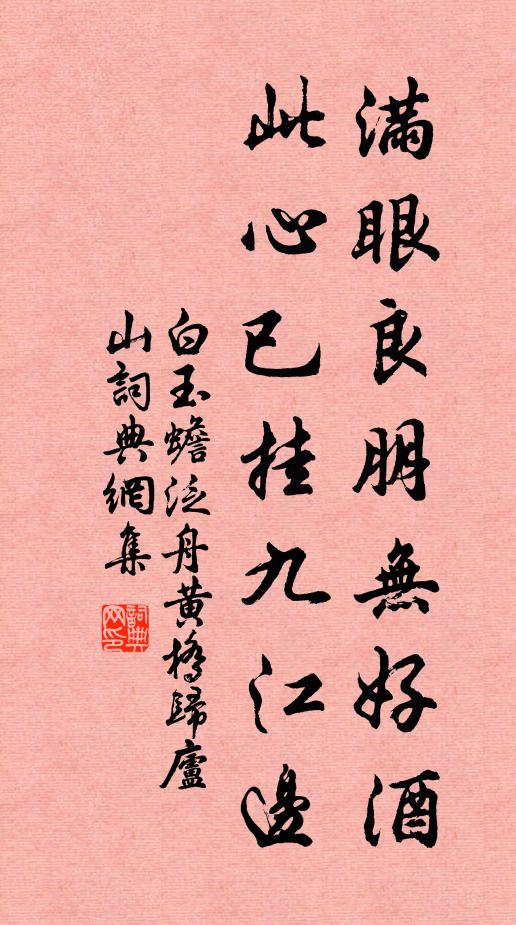 滿眼良朋無好酒
此心已挂九江邊
白玉蟾泛舟黃橋歸廬
山詞典網集
詞典網印